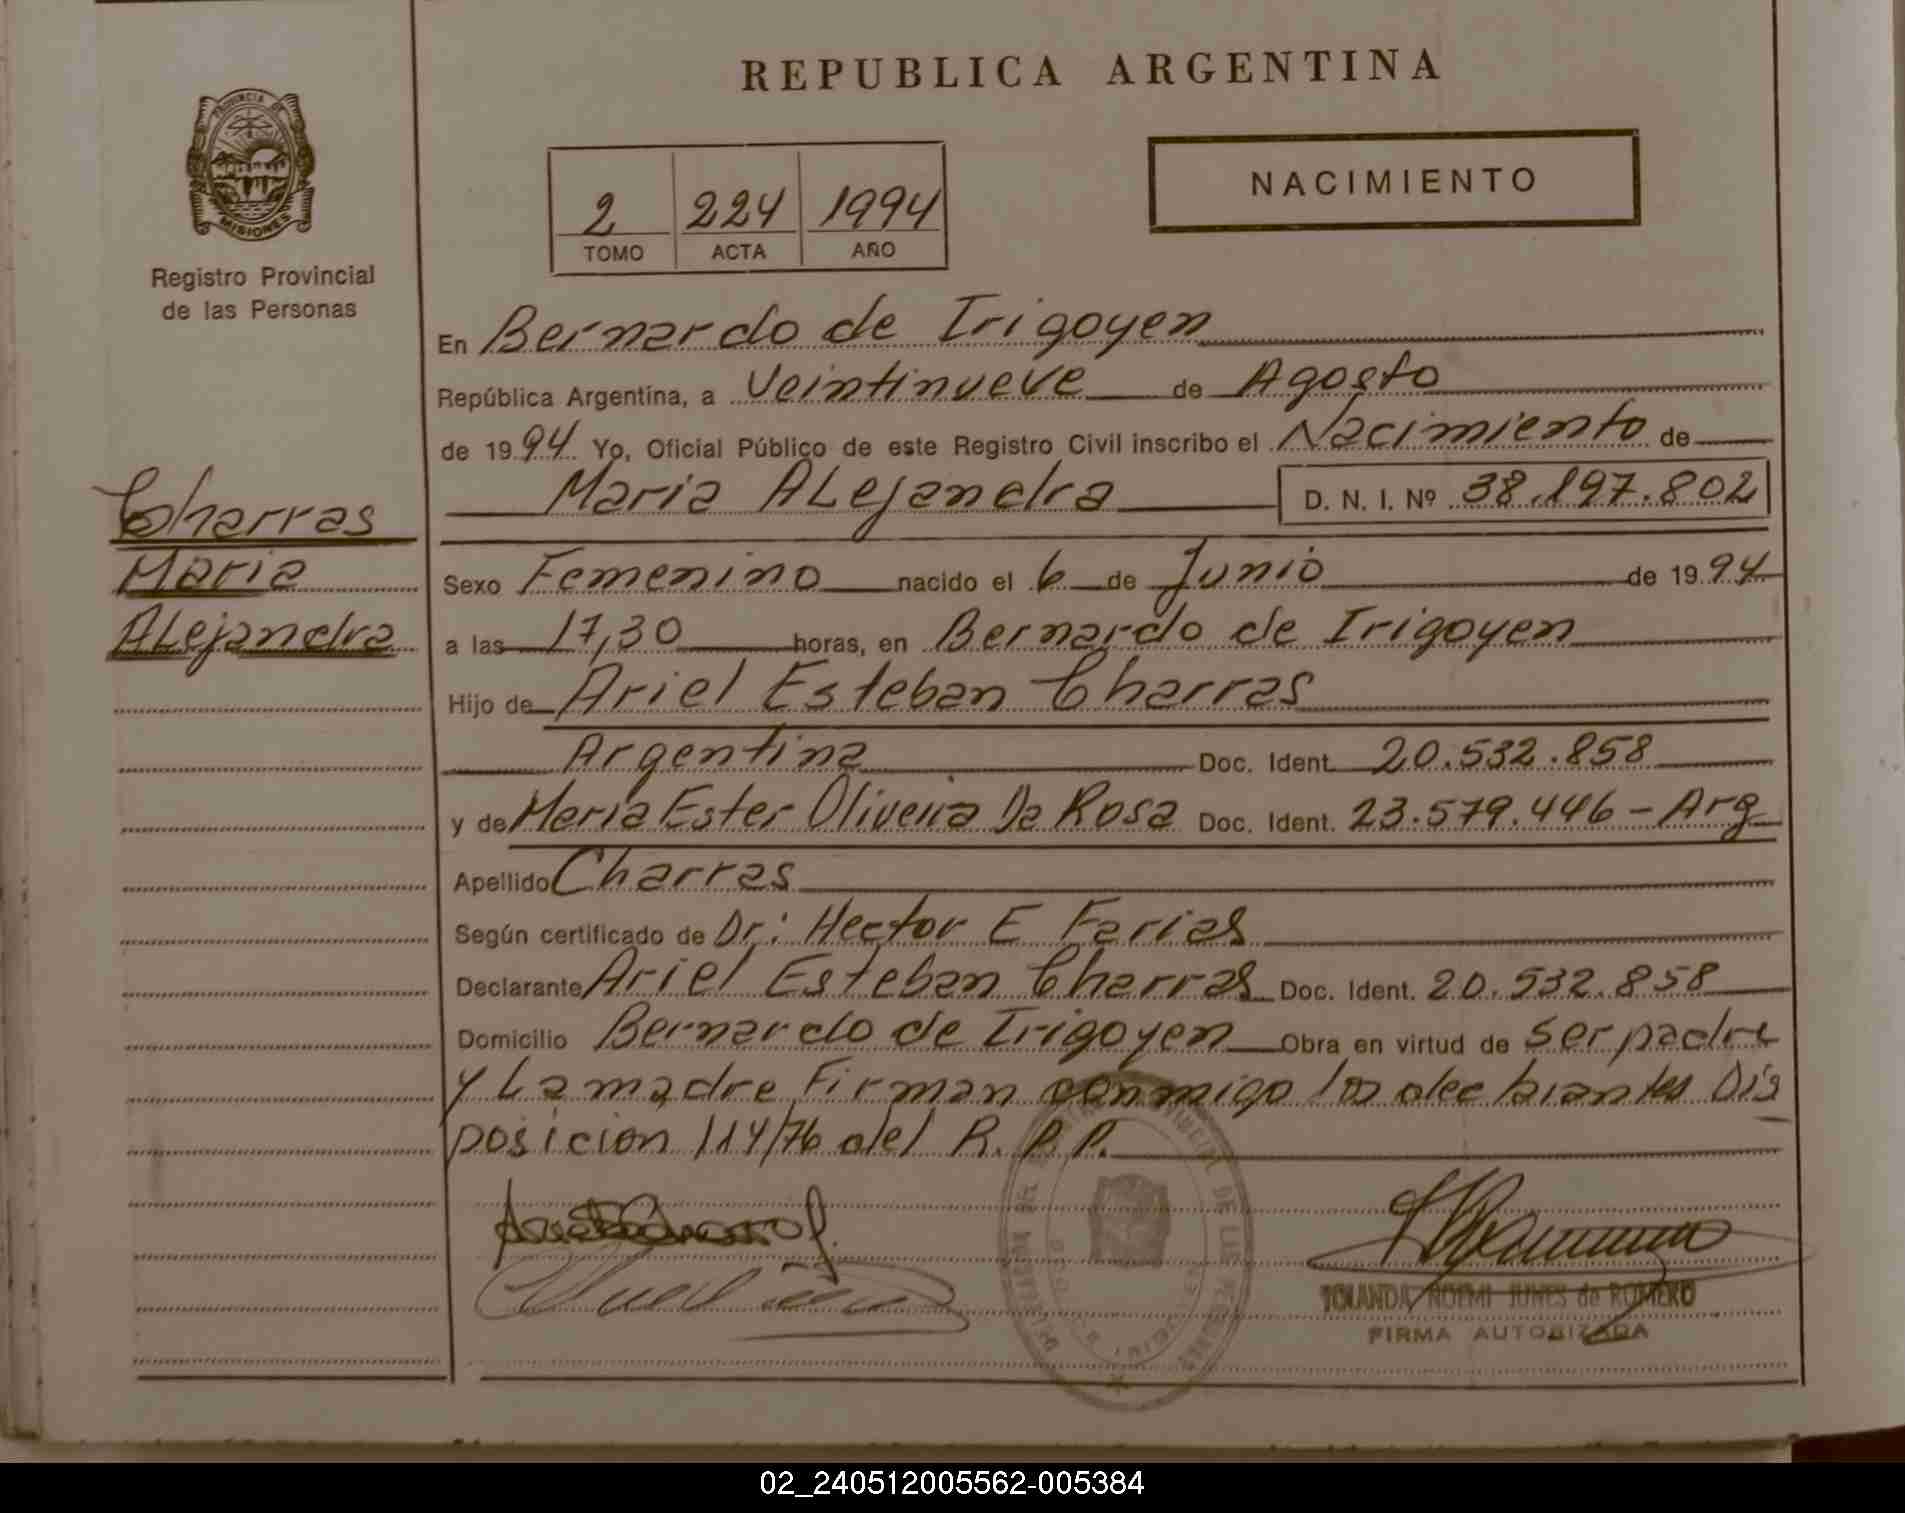 REPUBLICA ARGENTINA
PROVINCIA DE
MISIONES
Registro Provincial
de las Personas
2 224 1994
TOMO ACTA AÑO
NACIMIENTO
En Bernardo de Irigoyen
República Argentina, a Veintinueve de Agosto
de 1994 Yo, Oficial Público de este Registro Civil inscribo el Nacimiento de
Maria ALejandra D. N. I. Nº 38.197.802
Charras
Maria
ALejandra
Sexo Femenino nacido el 6 de Junio de 1994
a las 17,30 horas, en Bernardo de Irigoyen
Hijo de Ariel Esteban Charras
Argentina Doc. Ident. 20.532.858
y de Maria Ester Oliveira Da Rosa Doc. Ident. 23.579.446 - Arg
Apellido Charras
Según certificado de Dr: Hector E Farias
Declarante Ariel Esteban Charras Doc. Ident. 20.532.858
Domicilio Bernardo de Irigoyen Obra en virtud de ser padre
y La madre Firman conmigo los declarantes Dis
posicion 114/76 del R. P. P.
YOLANDA NOEMI JUNES de ROMERO
FIRMA AUTORIZADA
02_240512005562-005384